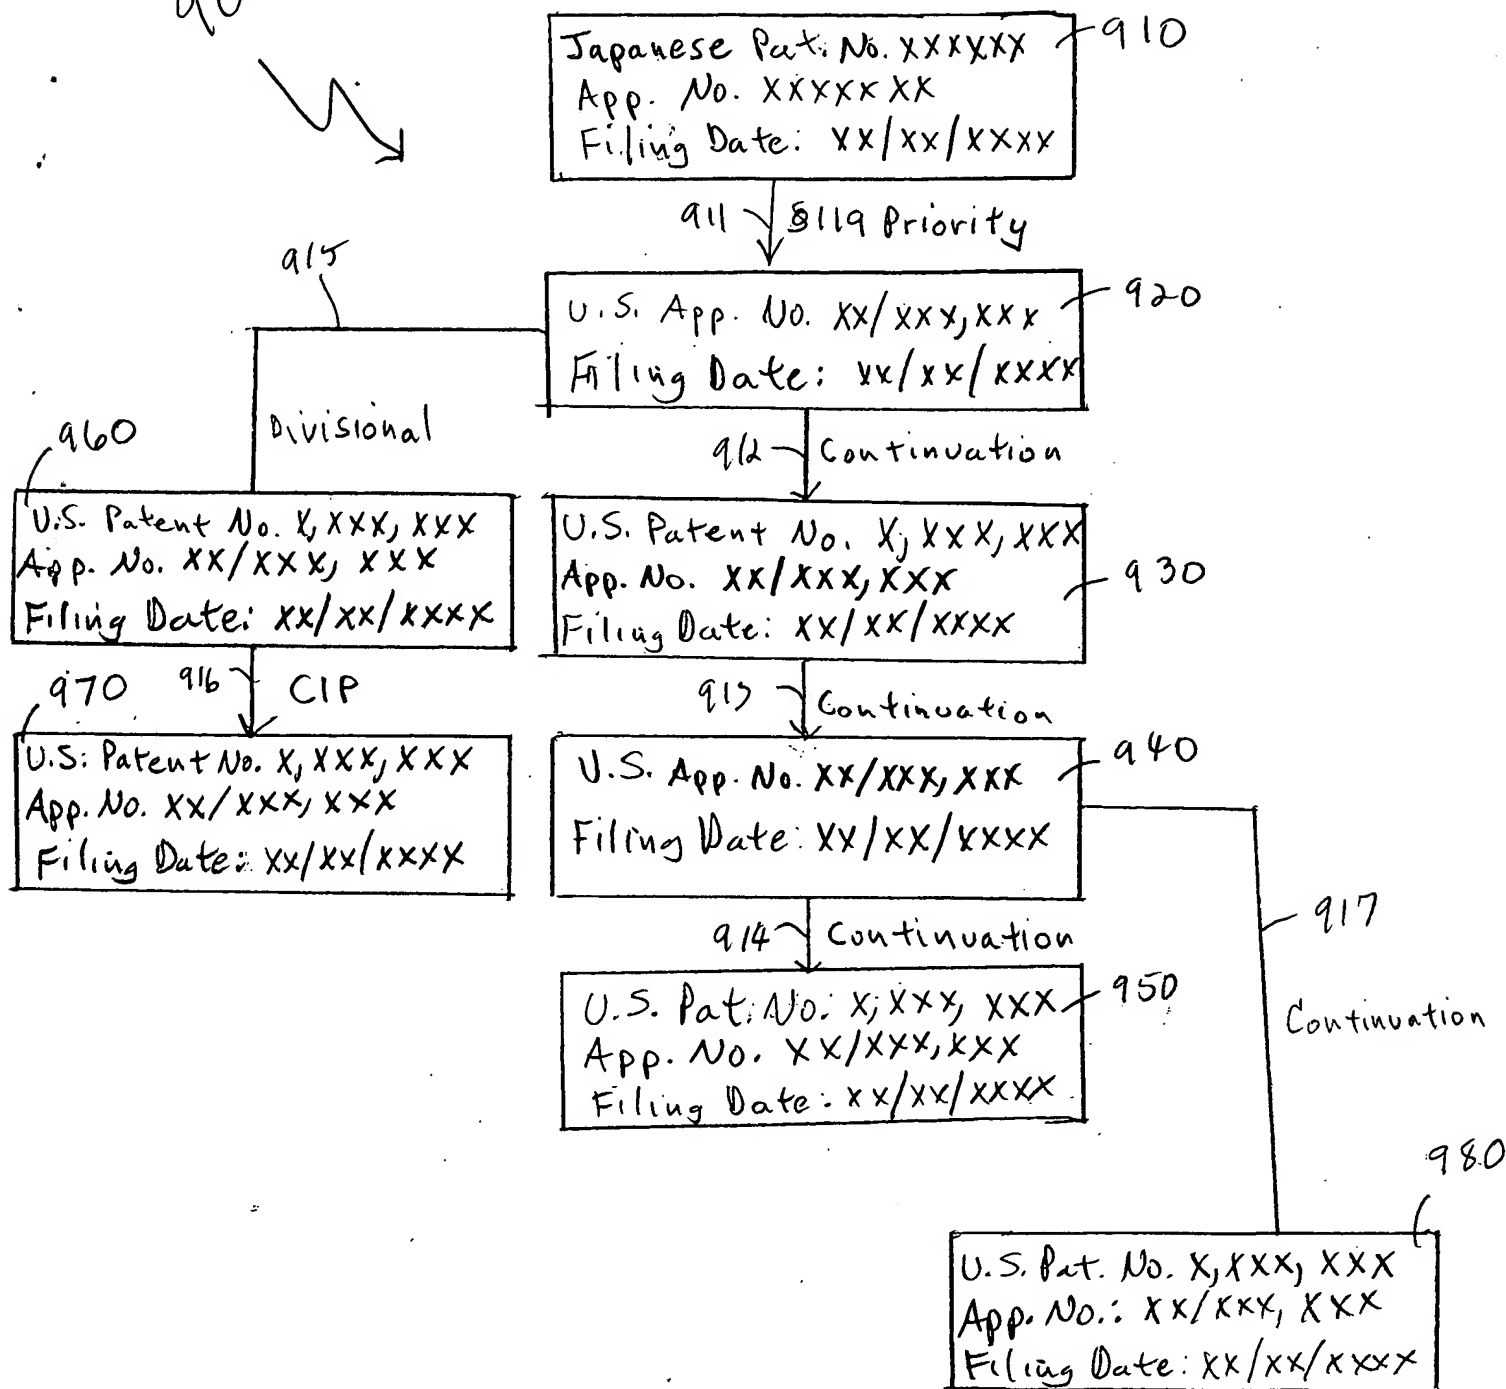 Japanese Pat. No. XXXXXX
App. No. XXXXXXX
Filing Date: XX/XX/XXXX
910
911
§119 Priority
915
U.S. App. No. XX/XXX,XXX
Filing Date: XX/XX/XXXX
920
Divisional
912
Continuation
960
U.S. Patent No. X,XXX,XXX
App. No. XX/XXX,XXX
Filing Date: XX/XX/XXXX
U.S. Patent No. X,XXX,XXX
App. No. XX/XXX,XXX
Filing Date: XX/XX/XXXX
930
916
CIP
913
Continuation
970
U.S. Patent No. X,XXX,XXX
App. No. XX/XXX,XXX
Filing Date: XX/XX/XXXX
U.S. App. No. XX/XXX,XXX
Filing Date: XX/XX/XXXX
940
914
Continuation
917
Continuation
U.S. Pat. No. X,XXX,XXX
App. No. XX/XXX,XXX
Filing Date: XX/XX/XXXX
950
980
U.S. Pat. No. X,XXX,XXX
App. No.: XX/XXX,XXX
Filing Date: XX/XX/XXXX